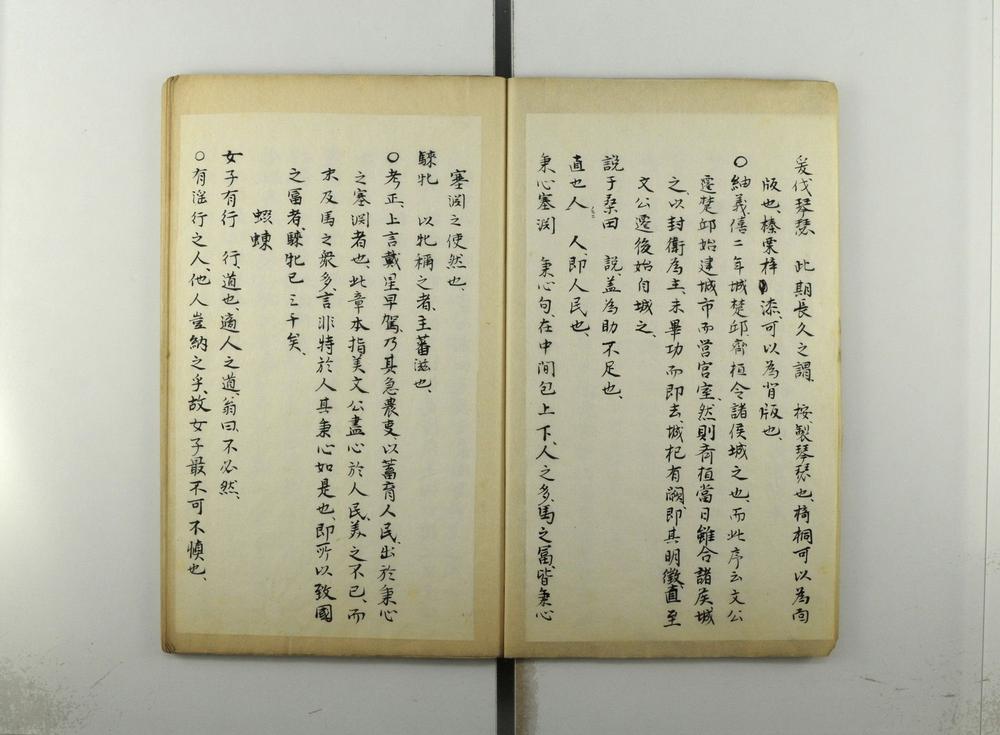 爰伐琴瑟　此期長久之謂　按、製琴瑟也、椅桐可以為面
版也、榛栗梓漆、可以為背版也、
〇紬義、僖二年城楚邱、齊桓令諸侯城之也、而此序云文公
遷楚邱始建城市而営宮室、然則齊桓當日雖合諸侯城
之、以封衛為主、未畢功而即去、城杞有闕、即其明徵、直至
文公遷後始自城之、
説于桑田　説、盖為助不足也、
直也人　人、即人民也、
秉心塞淵　秉心句、在中间包上下、人之多、馬之冨、皆秉心
塞淵之使然也、
騋牝　以牝稱之者、主蕃滋也、
〇考正、上言戴星早駕、乃其急農叓、以蓄育人民、出於秉心
之塞淵者也、此章本指美文公盡心於人民、美之不已、而
末及馬之衆多、言非特於人其秉心如是也、即所以致國
之冨者、騋牝已三千矣、
蝃蝀
女子有行　行、道也、適人之道、翁曰、不必然、
〇有滛行之人、他人豈納之乎、故女子最不可不慎也、